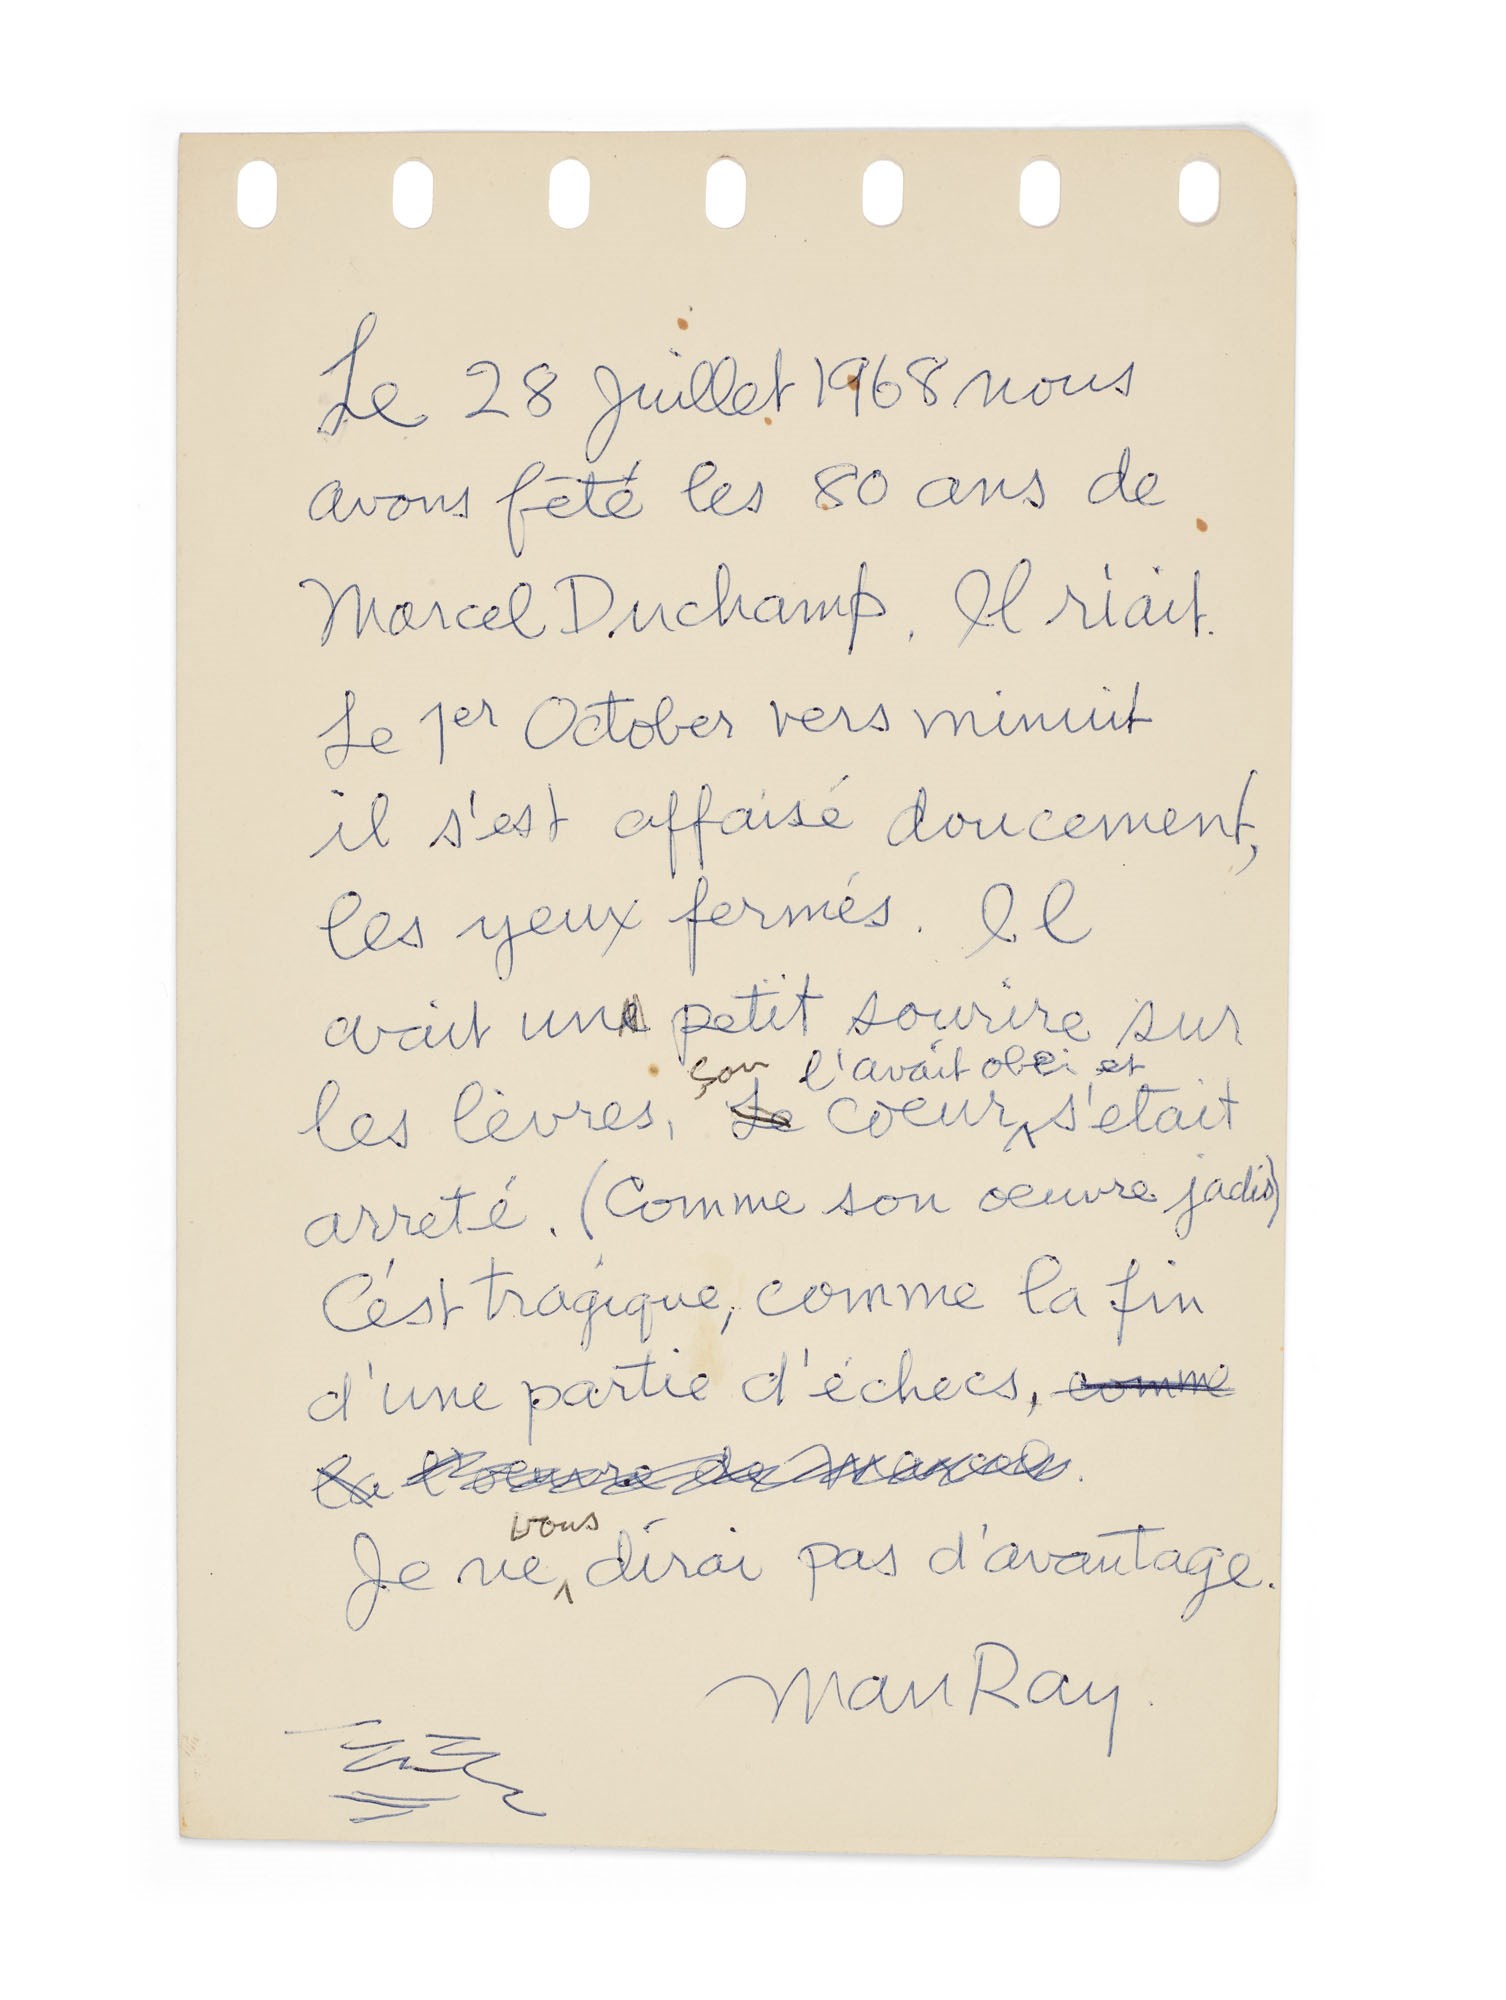 Le 28 Juillet 1968 nous
avons fêté les 80 ans de
Marcel Duchamp. Il riait.
Le 1er October vers minuit
il s'est affaisé doucement,
les yeux fermés. Il
avait un petit sourire sur
son l'avait obei et
les lèvres, Le coeur s'etait
arreté. (Comme son oeuvre jadis)
C'est tragique, comme la fin
d'une partie d'échecs, comme
la l'oeuvre de Marcel.
vous
Je ne dirai pas d'avantage.
Man Ray.